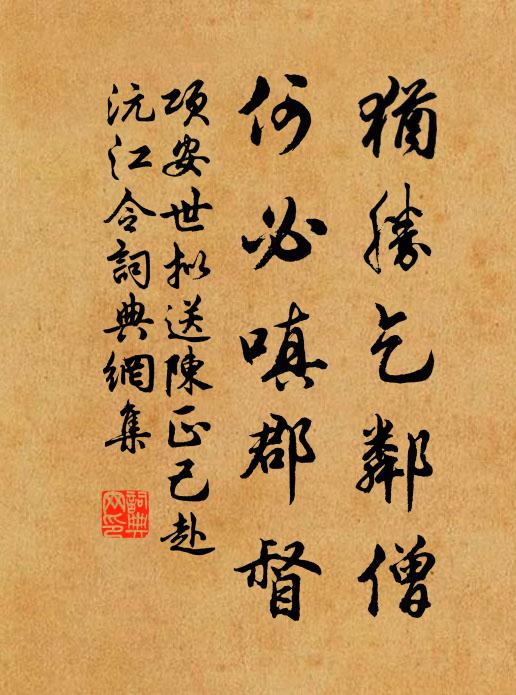 猶勝乞鄰僧
何必嗔郡督
項安世拟送陳正己赴
沅江令詞典網集
詞典
网印